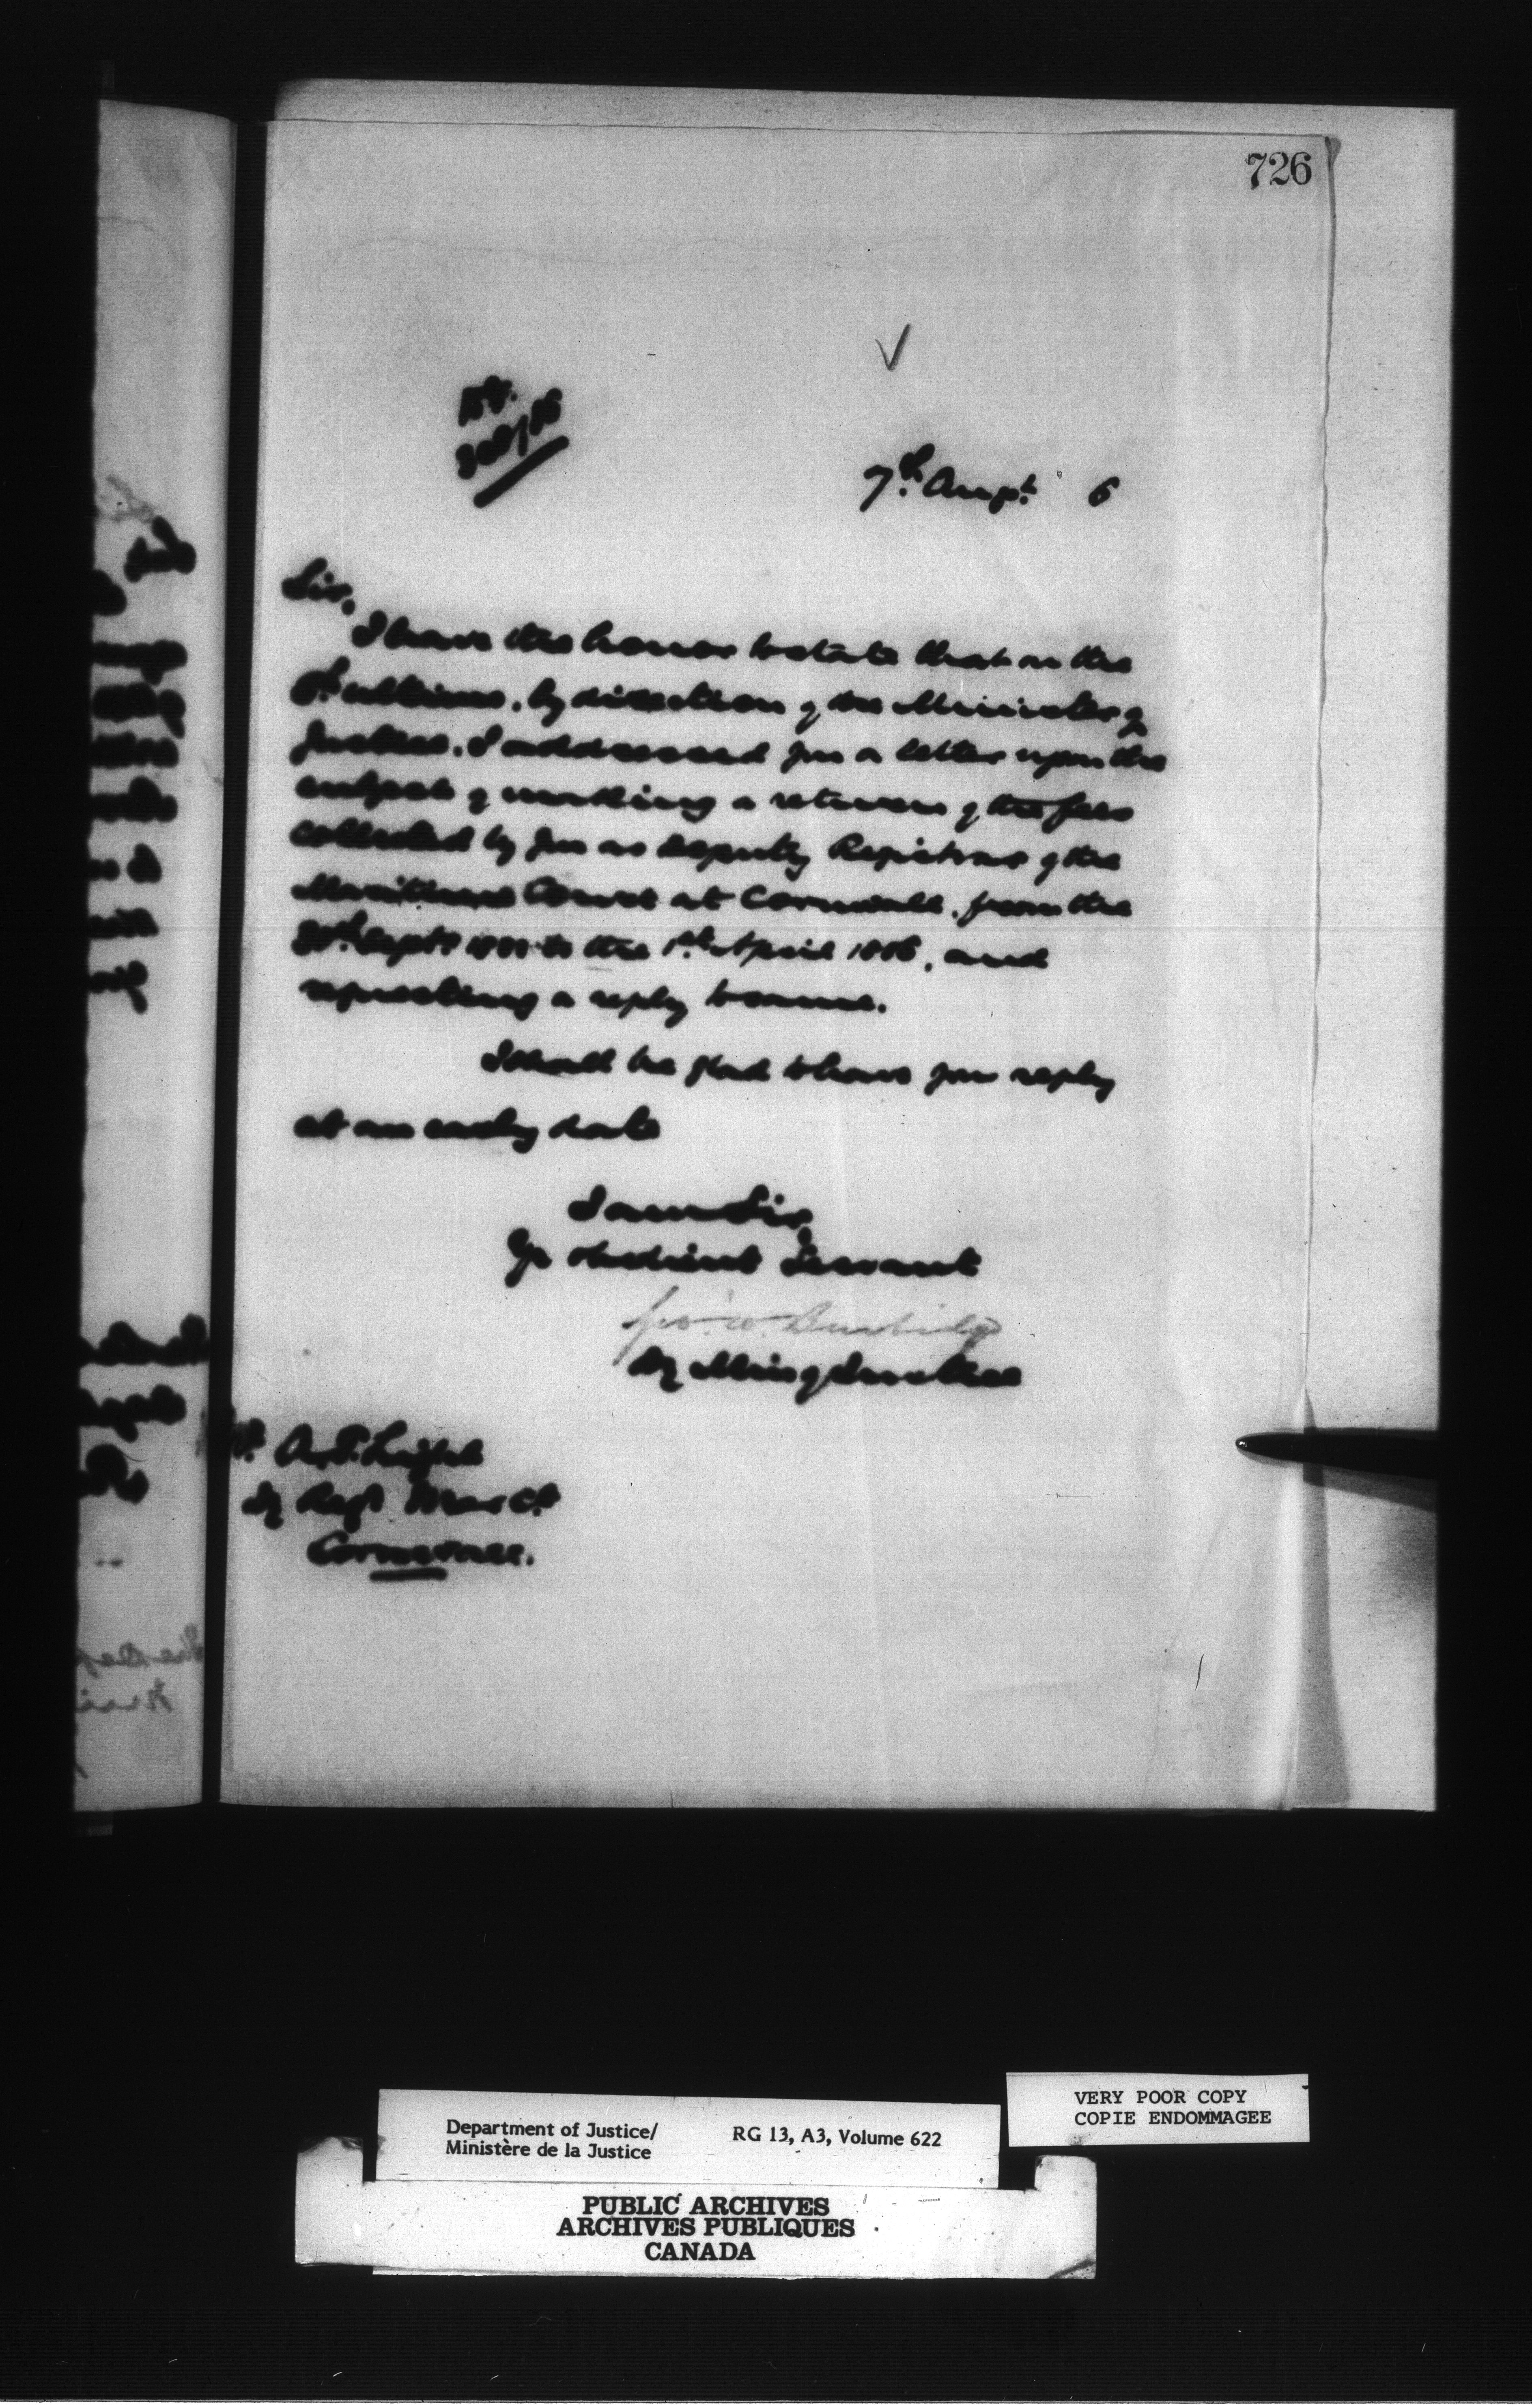 726
7th Augt. 6
Sir,
I have the honor to state that on the
ultimo, by direction of the Minister of
Justice, I addressed you a letter upon the
subject of making a return of the fees
collected by you as Deputy Registrar of the
Maritime Court at Cornwall, from the
30th Sept. to the 1st April 1886, and
requesting a reply to same.
I shall be glad to have your reply
at an early date
I am Sir
Yr obedient Servant
Geo. W. Burbidge
Dy Min of Justice
A. F. Light
Dy Regr Mar Ct
Cornwall.
Department of Justice/
Ministère de la Justice
RG 13, A3, Volume 622
VERY POOR COPY
COPIE ENDOMMAGEE
PUBLIC ARCHIVES
ARCHIVES PUBLIQUES
CANADA